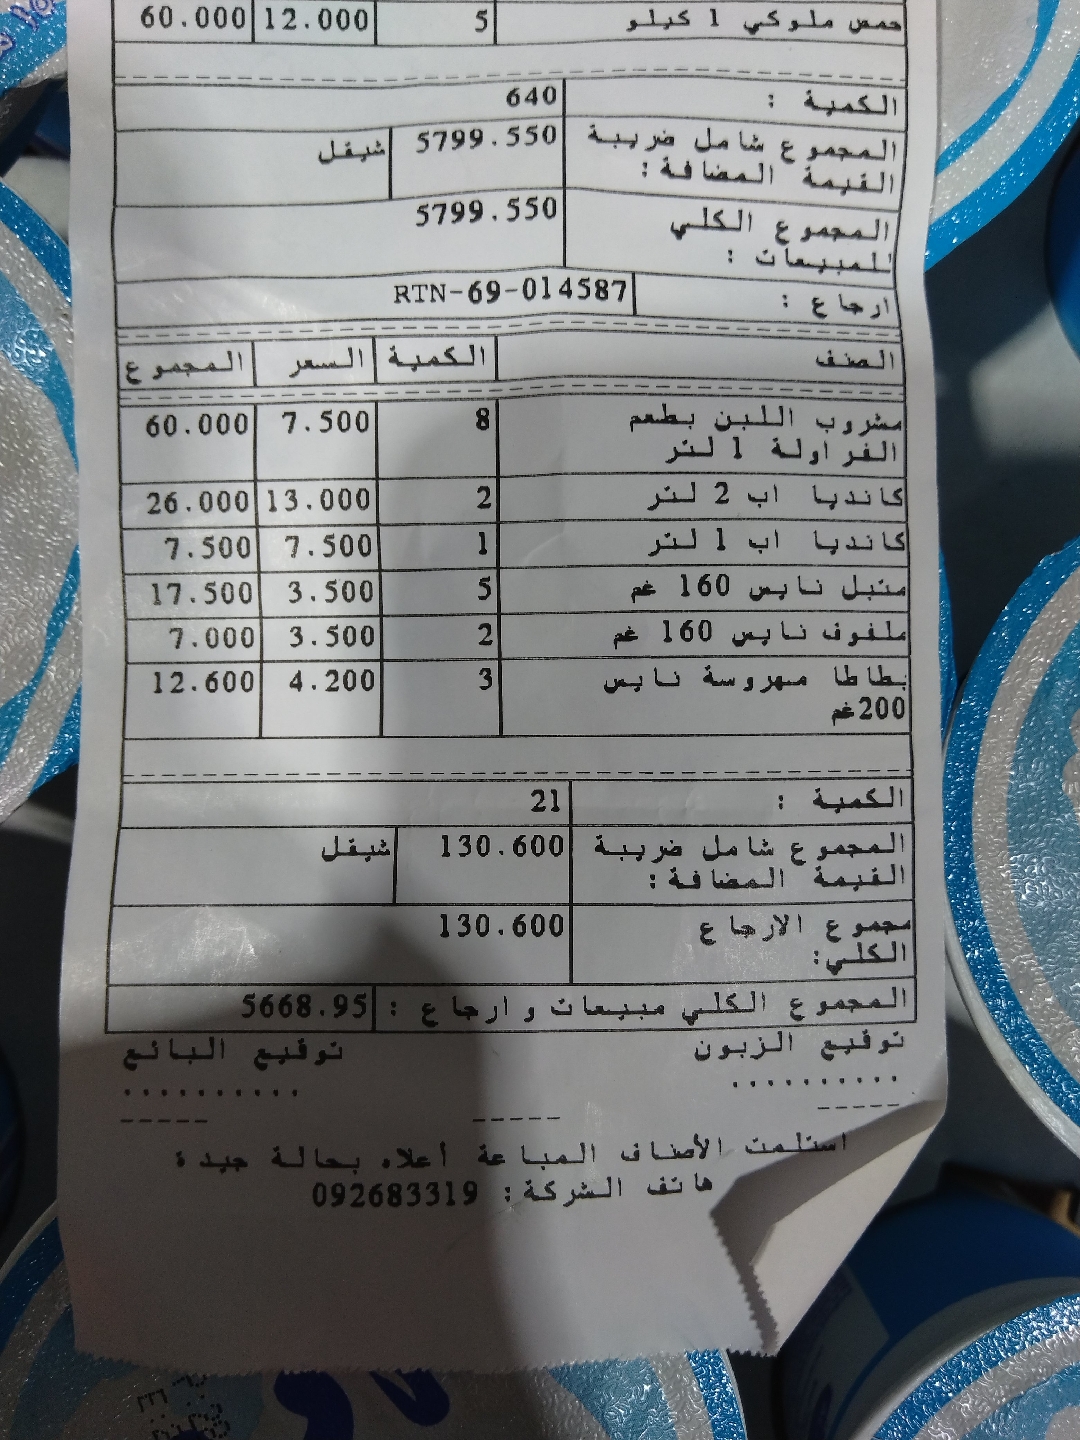 حمص ملوكي 1 كيلو 5 12.000 60.000
الكمية : 640
المجموع شامل ضريبة 5799.550 شيقل
القيمة المضافة :
المجموع الكلي 5799.550
للمبيعات :
ارجاع : RTN-69-014587
الصنف الكمية السعر المجموع
مشروب اللبن بطعم 8 7.500 60.000
الفراولة 1 لتر
كانديا اب 2 لتر 2 13.000 26.000
كانديا اب 1 لتر 1 7.500 7.500
متبل نايس 160 غم 5 3.500 17.500
ملفوف نايس 160 غم 2 3.500 7.000
بطاطا مهروسة نايس 3 4.200 12.600
200غم
الكمية : 21
المجموع شامل ضريبة 130.600 شيقل
القيمة المضافة :
مجموع الارجاع 130.600
الكلي:
المجموع الكلي مبيعات و ارجاع : 5668.95
توقيع الزبون توقيع البائع
.......... ..........
----- ----- -----
استلمت الأصناف المباعة أعلاه بحالة جيدة
هاتف الشركة : 092683319